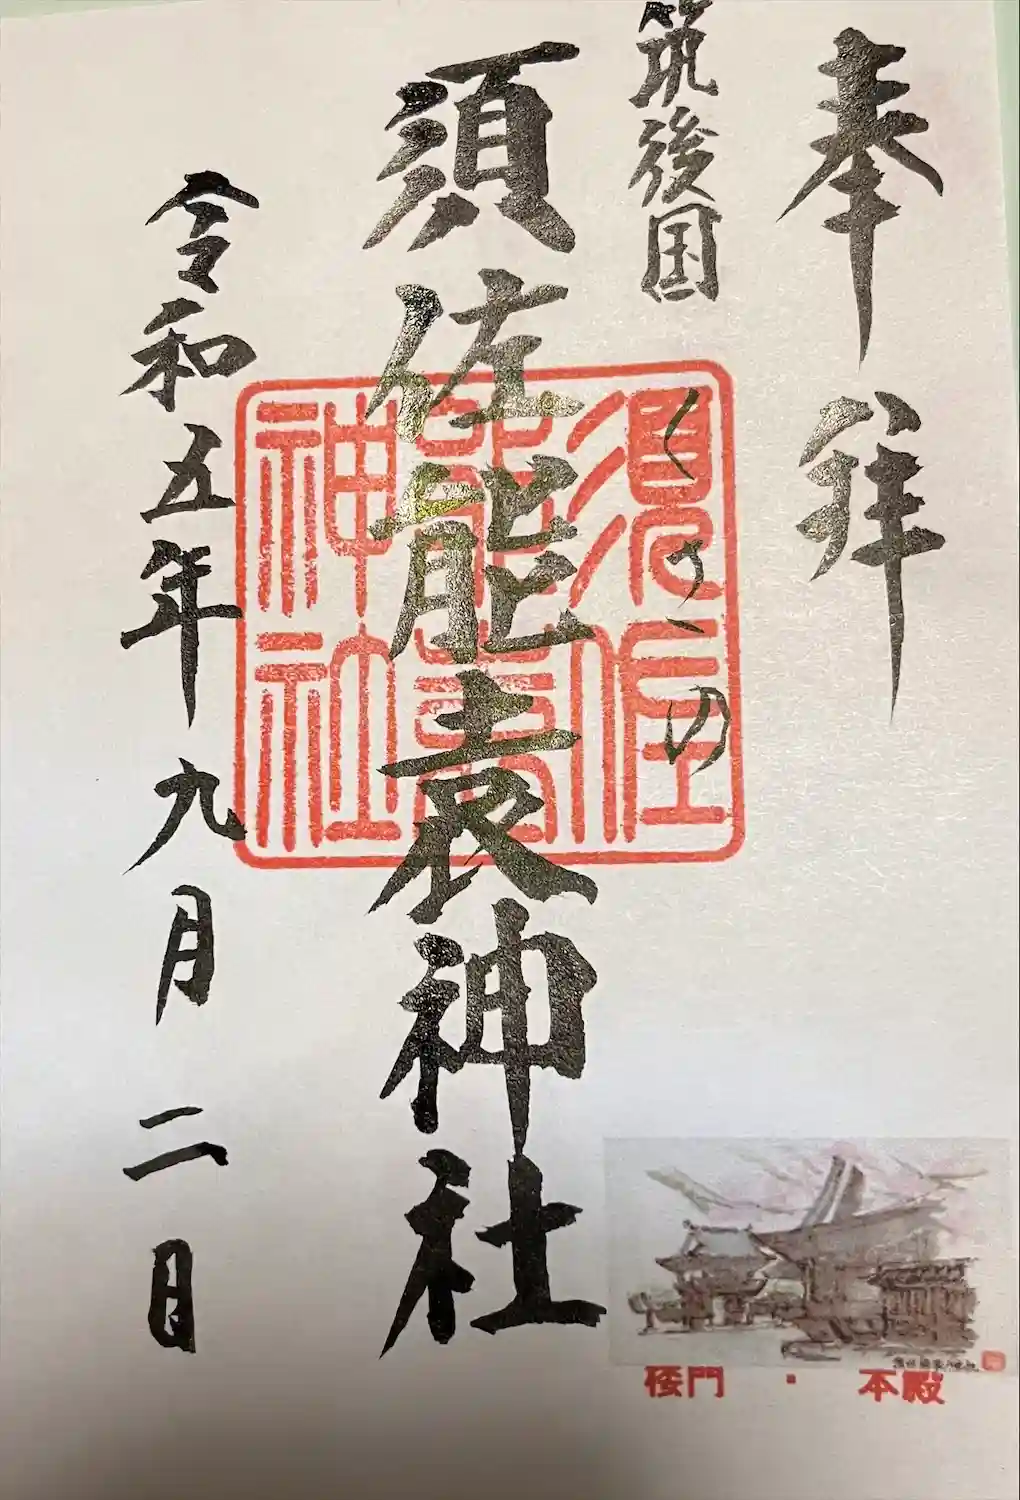 奉拝
筑後国
くさゝの
須佐能袁神社
須佐
能袁
神社
令和五年九月二日
楼門・本殿